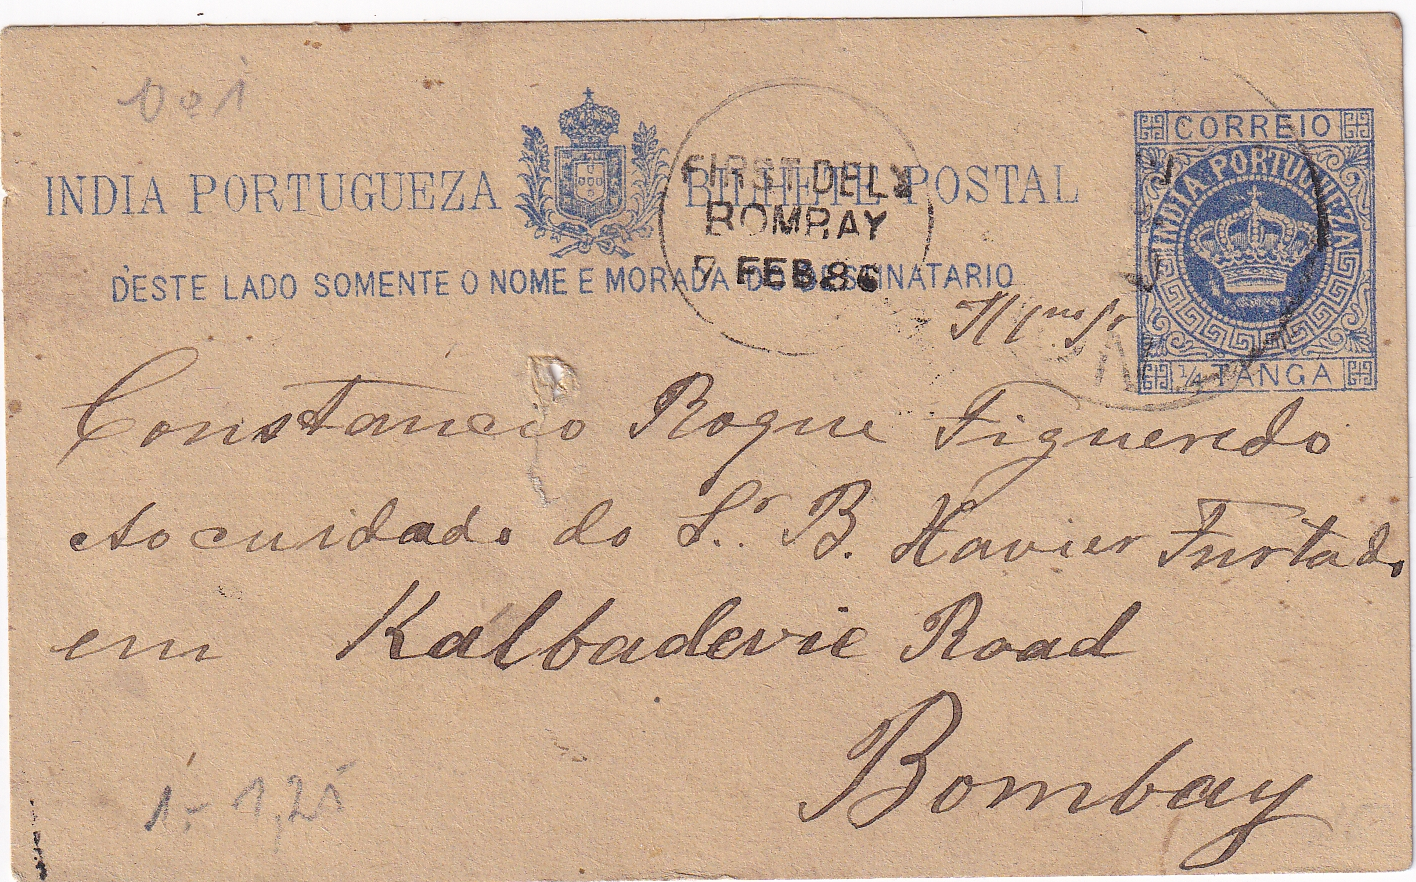 INDIA PORTUGUEZA BILHETE POSTAL
DESTE LADO SOMENTE O NOME E MORADA DO DESTINATARIO
FIRST DELY
BOMBAY
7 FEB 86
CORREIO
INDIA PORTUGUEZA
1/4 TANGA
Illmo. Sr
Constancio Roque Figueredo
Ao cuidado do Sr. B. Xavier Furtado
em Kalbadevie Road
Bombay
1.- 1,25